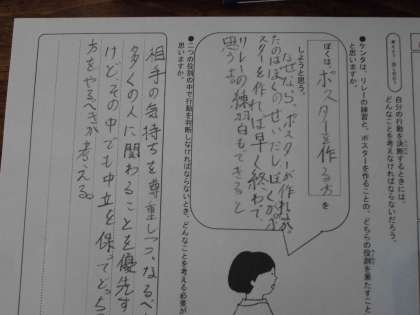 考えよう・話し合おう
自分の行動を決断するときには、
どんなことを考えなければならないだろう。
●ケンタは、リレーの練習と、ポスターを作ることの、どちらの役割を果たすこと
と思いますか。
ぼくは、ポスターを作る方を
しようと思う。
なぜなら、ポスターが作れなか
ったのはぼくのせいだしぼくがポ
スターを作れば早く終わって、
リレーの練習もできると
思うよ。
●二つの役割の中で行動を判断しなければならないとき、どんなことを考える必要が
思いますか。
相手の気持ちを尊重しつつ、なるべ
多くの人に関わることを優先す
けど、その中でも中立を保ってどっち
方をやるべきか考える。